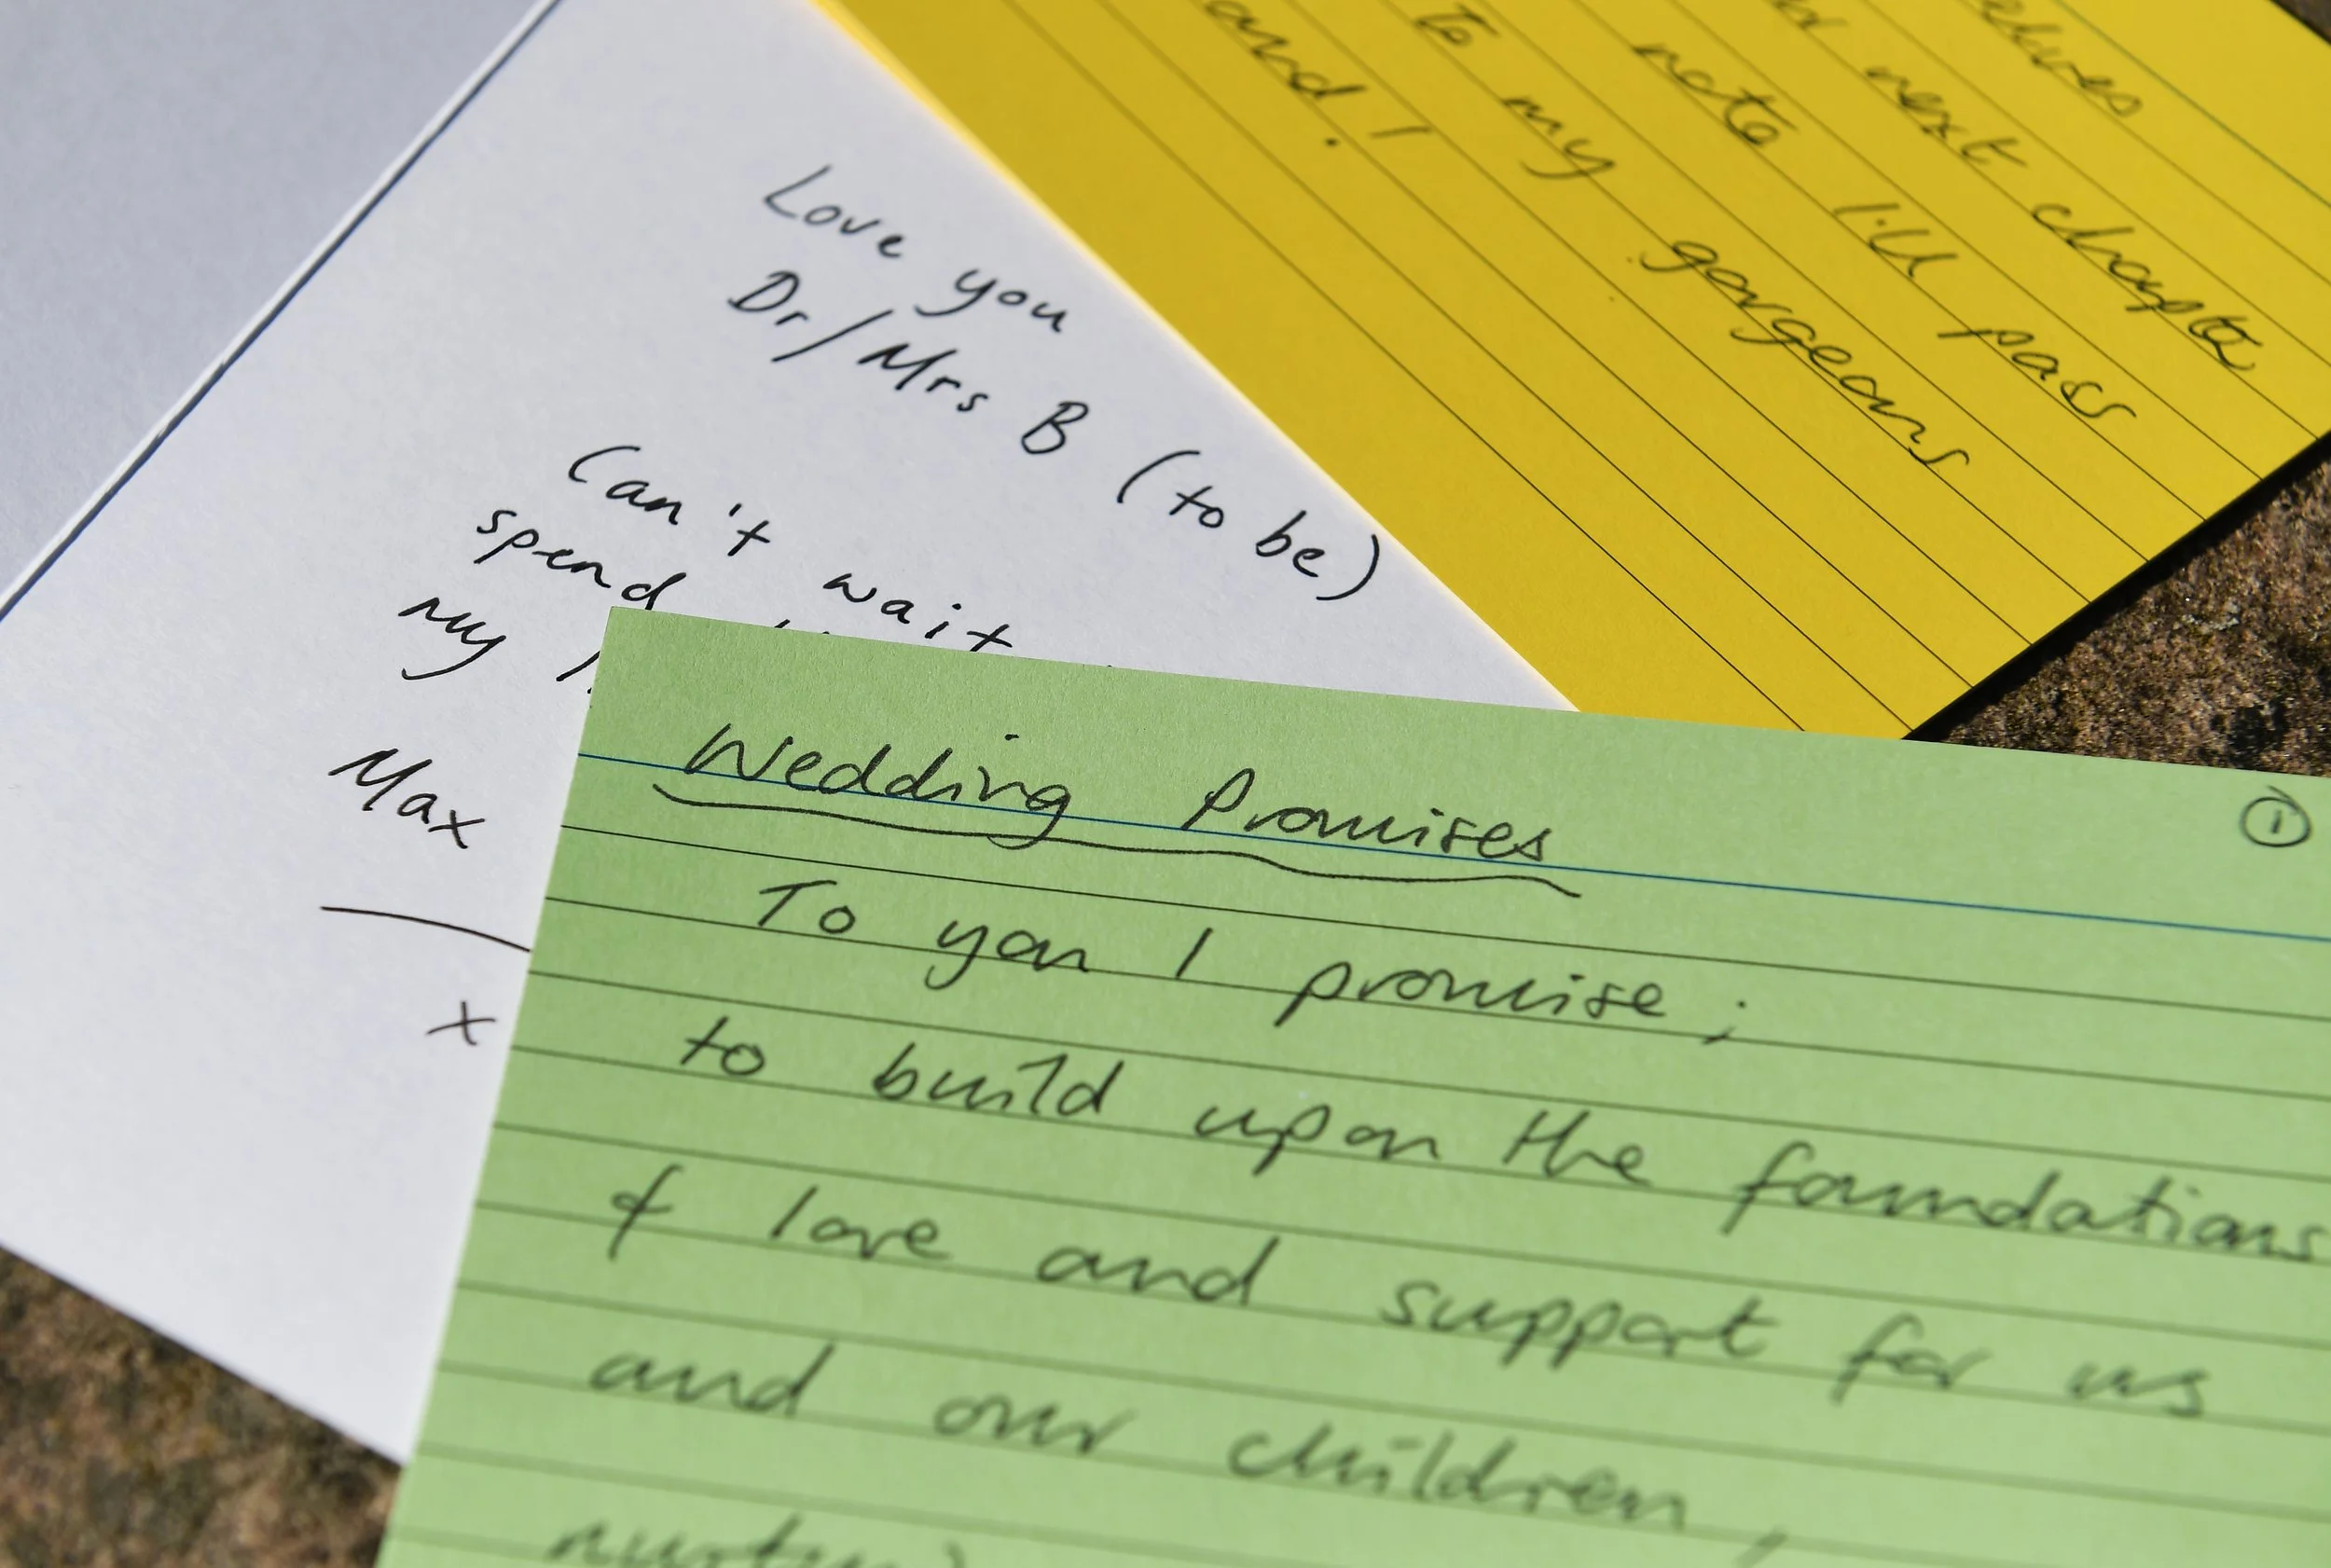 Love you
Dr/Mrs B (to be)
Can't wait
spend
my
Max
x
next chapter
note I'll pass
to my gorgeous
and!
Wedding Promises ①
To you I promise;
to build upon the foundations
of love and support for us
and our children,